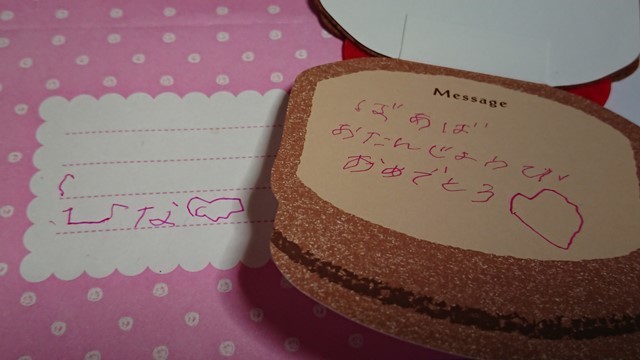 Message
ばあば
おたんじょうび
おめでとう
ひな